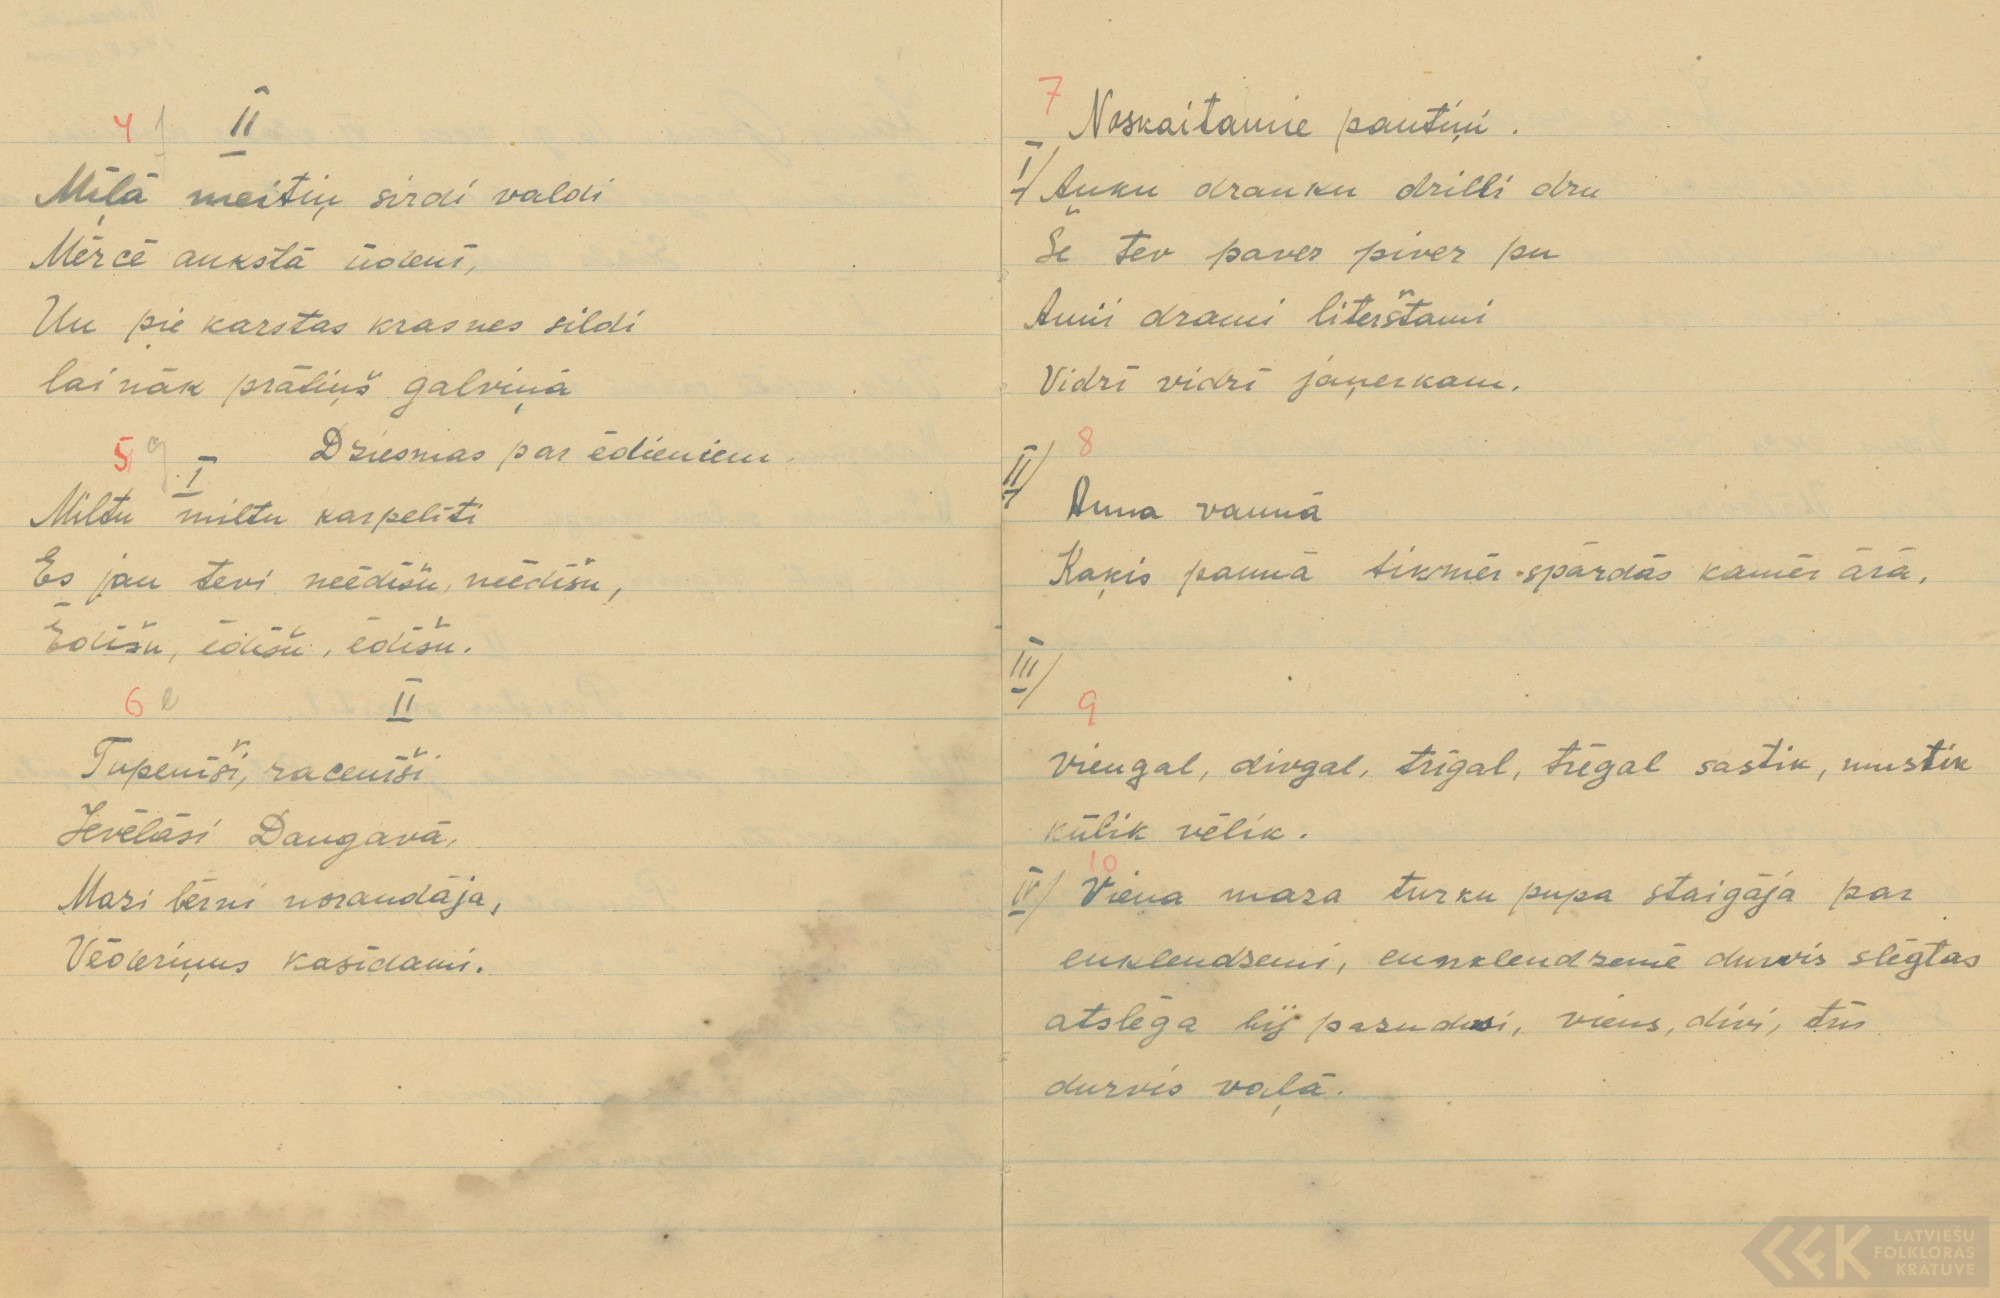 4 II
Mīļā meitiņ sirdi valdi
Mērcē aukstā ūdenī,
Un pie karstas krasnes sildi
lai nāk prātiņš galviņā
5 I Dziesmas par ēdieniem.
Miltu miltu karpelīti
Es jau tevi neēdīšu, neēdīšu,
Ēdīšu, ēdīšu, ēdīšu.
6 II
Tupenīši, racenīši
Ievēlāsi Daugavā,
Mazi bērni noraudāja,
Vēderiņus kasīdami.
7
Noskaitamie pantiņi.
I/ Anku dranku drilli dru
Še tev paver piver pu
Amii drami literštami
Vidrī vidrī jaņerkam.
II/ 8
Anna vannā
Kaķis pannā tikmēr spārdās kamēr ārā,
III/
9
Viengal, divgal, trīgal, trēgal sastik, mustik
kūlik vēlik.
10
IV/ Viena maza turku pupa staigāja par
enklendzemi, ennklendzemē durvis slēgtas
atslēga bij pazudusi, viens, divi, trīs
durvis vaļā.
LATVIEŠU
FOLKLORAS
KRATUVE